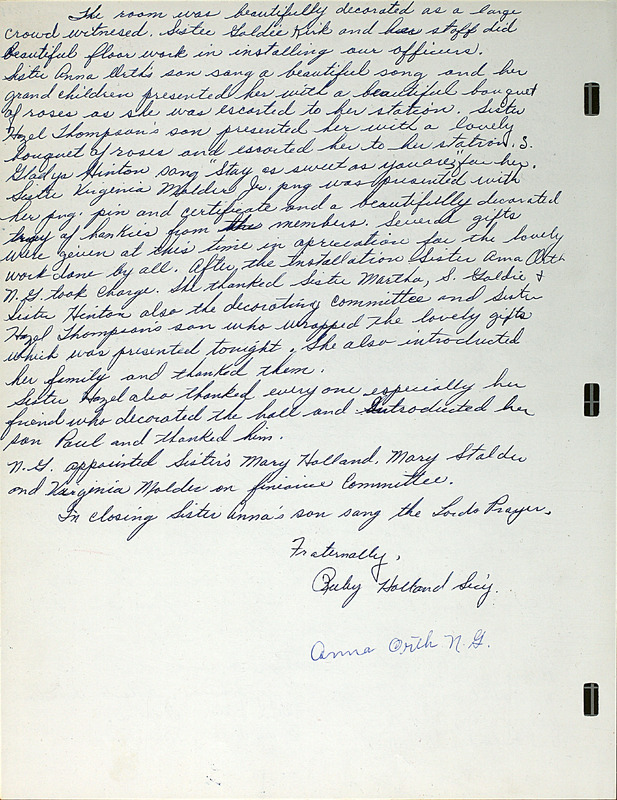 The room was beautifully decorated as a large
crowd witnesed. Sister Goldie Kirk and her staff did
beautiful floor work in installing our officers.
Sister Anna Orth's son sang a beautiful song and her
grand children presented her with a beautiful bouquet
of roses as she was escorted to her station. Sister
Hazel Thompson's son presented her with a lovely
bouquet of roses and escorted her to her station. S.
Gladys Hinton sang "Stay as sweet as you are" for her.
Sister Virginia Molder Jr. png was presented with
her png. pin and certificate and a beautifully decorated
tray of hankies from the members. Several gifts
were given at this time in apreciation for the lovely
work done by all. After the Installation Sister Anna Orth
N.G. took charge. She thanked Sister Martha, S. Goldie &
Sister Hinton also the decorating committee and Sister
Hazel Thompson's son who wrapped the lovely gifts
which was presented tonight. She also introducted
her family and thanked them.
Sister Hazel also thanked everyone especially her
friend who decorated the hall and introducted her
son Paul and thanked him.
N.G. appointed Sister's Mary Holland, Mary Stalder
and Virginia Molder on finance Committee.
In closing Sister Anna's son sang the Lords Prayer.
Fraternally,
Ruby Holland Sec'y.
Anna Orth N.G.